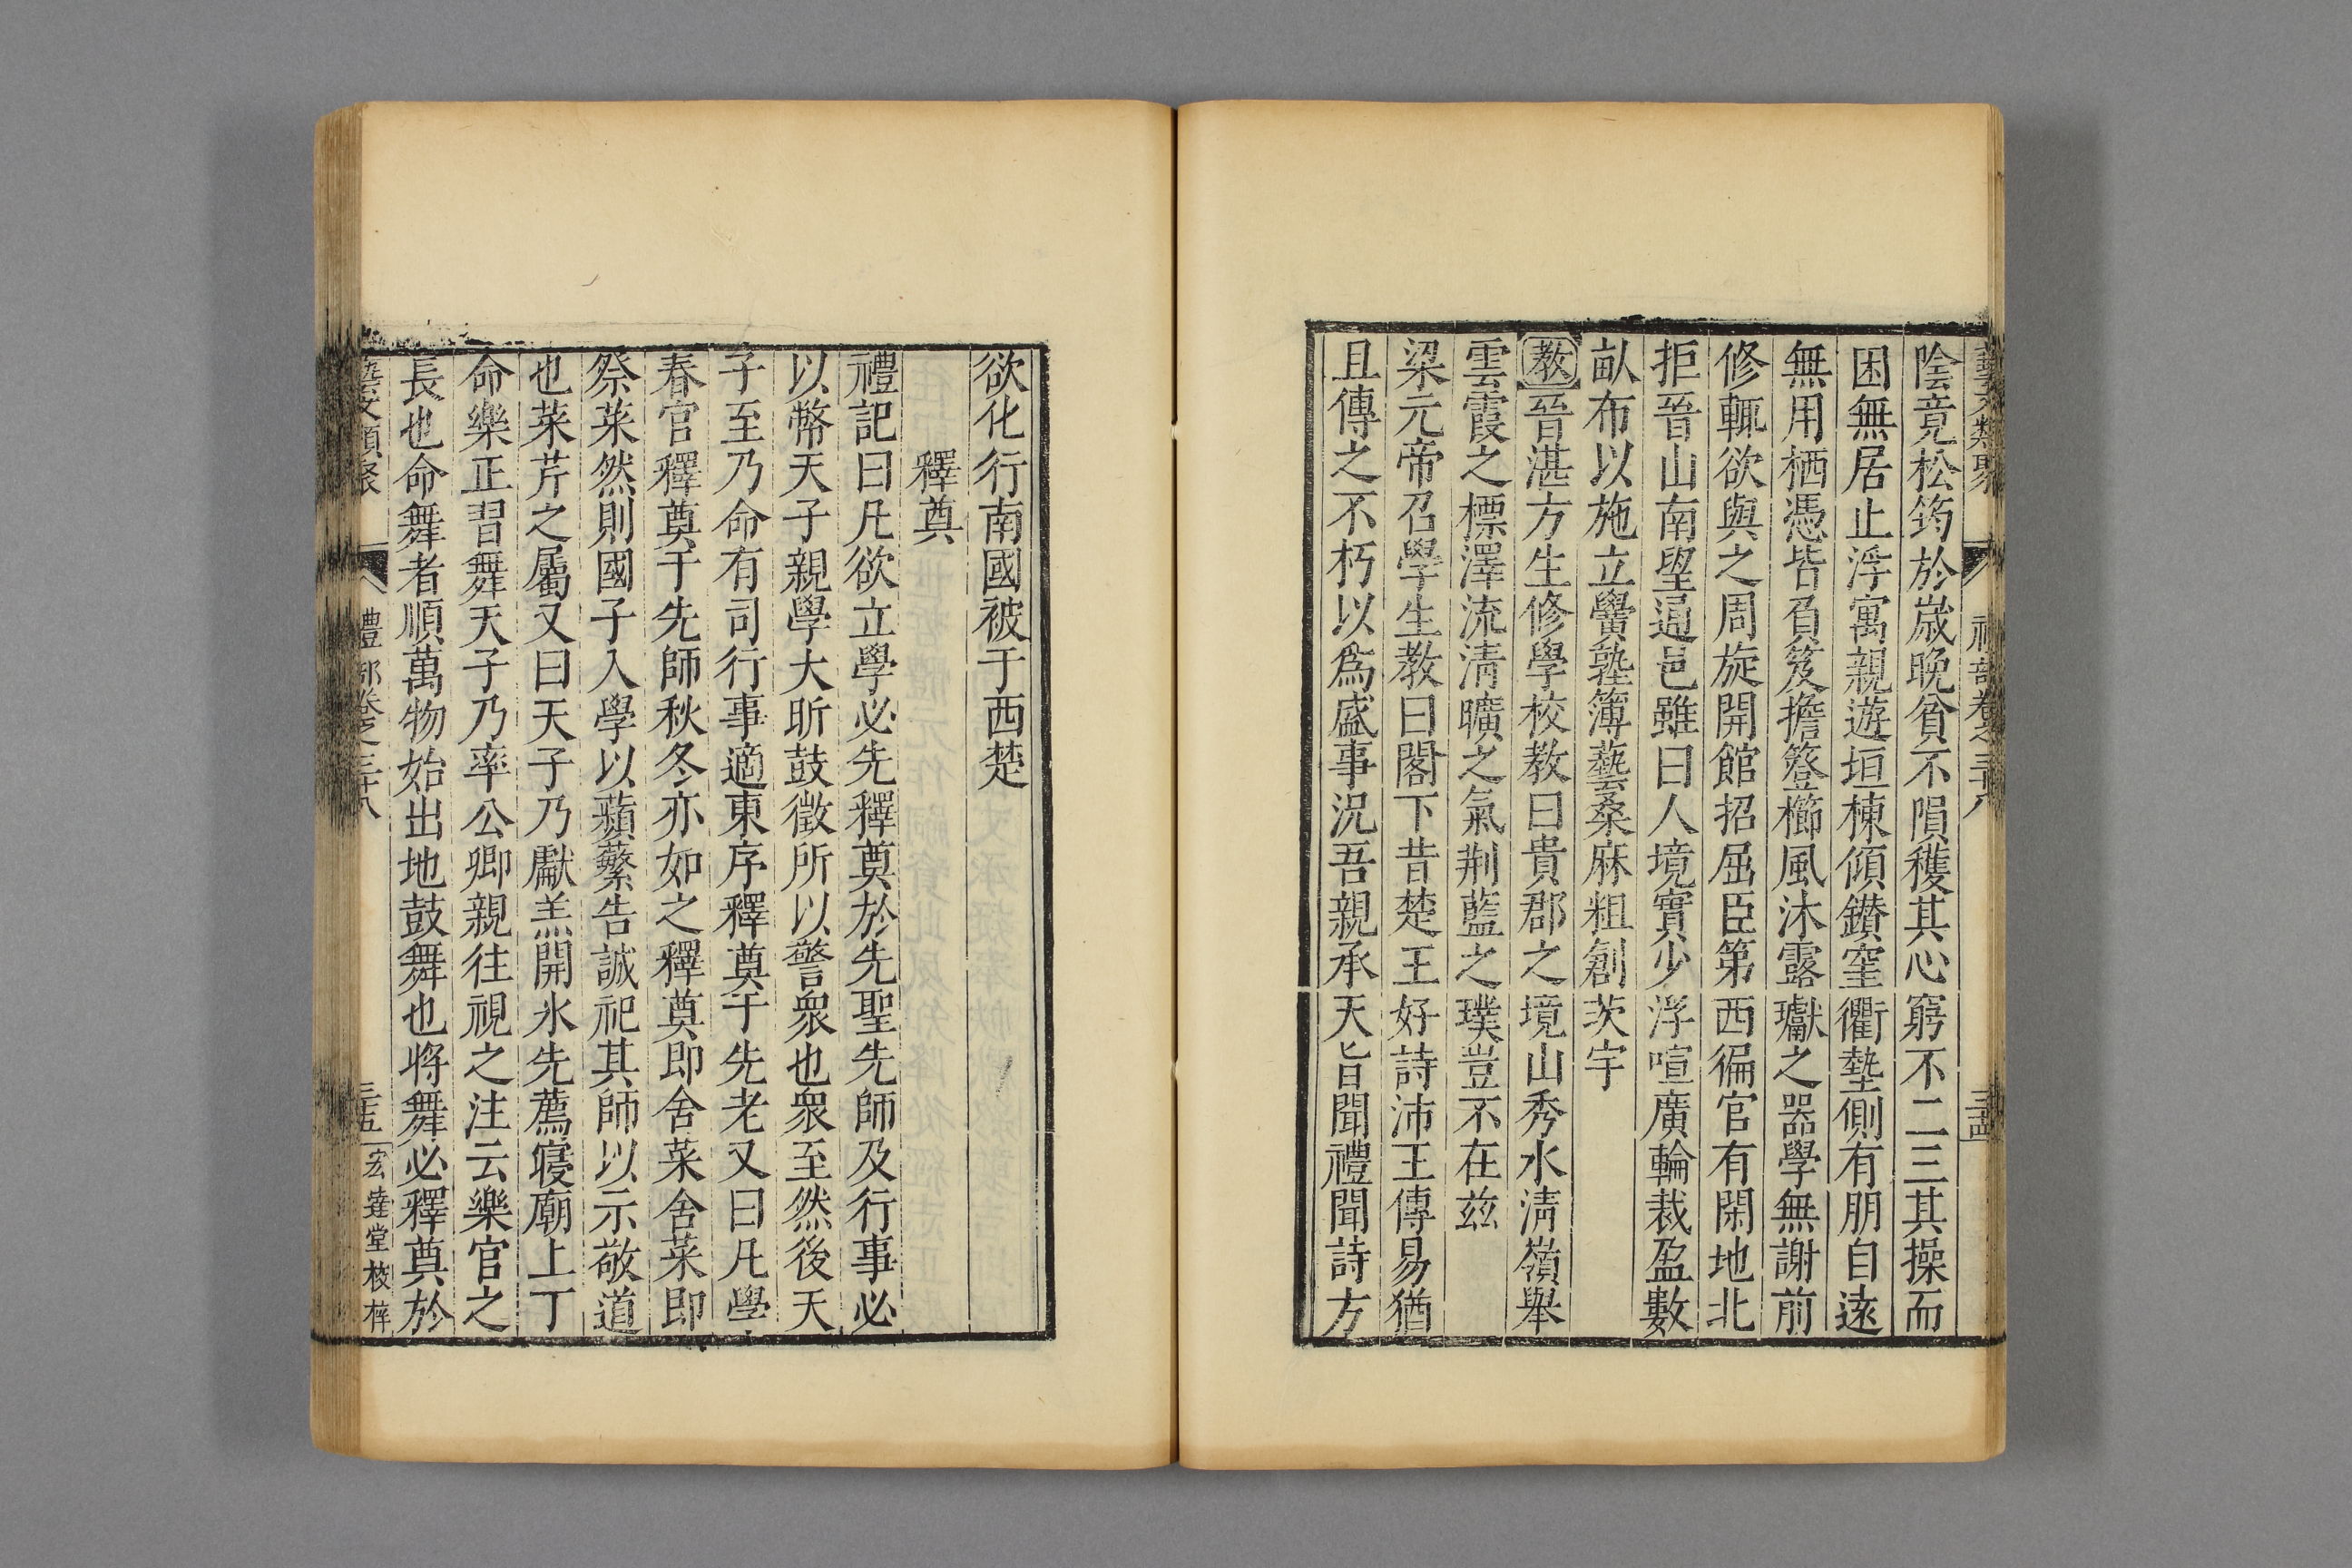 藝文類聚 禮部卷之三十八 三十四
陰竟松筠於歲晚貧不隕穫其心窮不二三其操而
困無居止浮寓親遊垣棟傾鑚窐衢墊側有朋自遠
無用栖憑皆負笈擔簦櫛風沐露瓛之器學無謝前
修輒欲與之周旋開館招屈臣第西徧官有閑地北
拒晉山南望通邑雖曰人境實少浮喧廣輪裁盈數
畝布以施立黌塾簿藝桑麻粗創茨宇
教晉湛方生修學校教曰貴郡之境山秀水清嶺舉
雲霞之標澤流清曠之氣荆藍之璞豈不在兹
梁元帝召學生教曰閣下昔楚王好詩沛王傳易猶
且傳之不朽以爲盛事況吾親承天旨聞禮聞詩方
欲化行南國被于西楚
釋奠
禮記曰凡欲立學必先釋奠於先聖先師及行事必
以幣天子親學大昕鼓徵所以警衆也衆至然後天
子至乃命有司行事適東序釋奠于先老又曰凡學
春官釋奠于先師秋冬亦如之釋奠即舍菜舍菜即
祭菜然則國子入學以蘋蘩告誠祀其師以示敬道
也菜芹之屬又曰天子乃獻羔開氷先薦寢廟上丁
命樂正習舞天子乃率公卿親往視之注云樂官之
長也命舞者順萬物始出地鼓舞也將舞必釋奠於
藝文類聚 禮部卷之三十八 三十五 宏達堂校梓